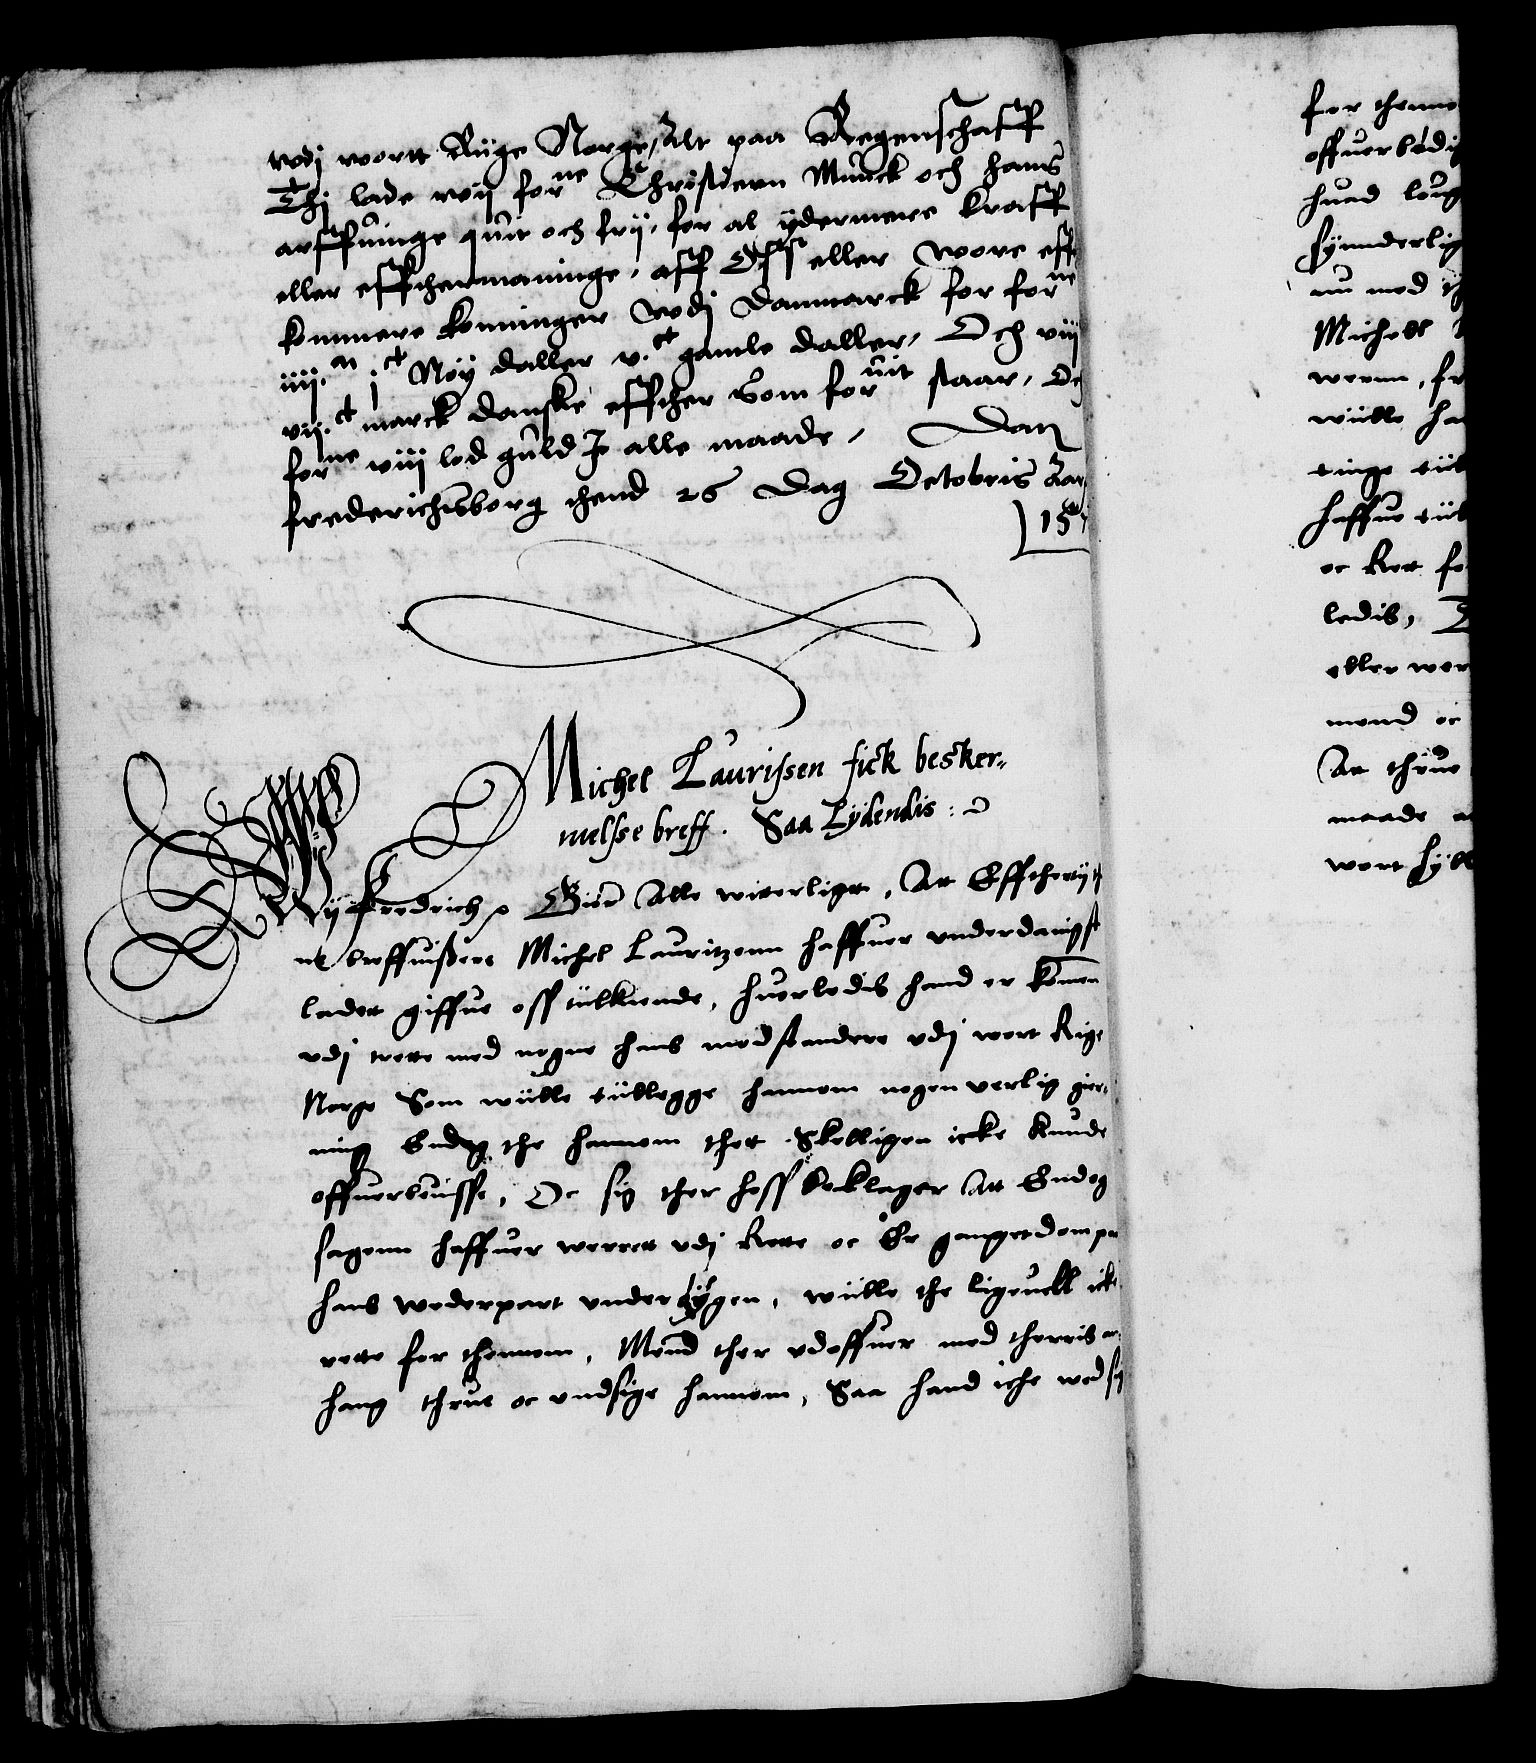 wdj wortt Rige Norge, Alt paa Regenschafft
Thj lade wij for^ne Christiern Munck och hans
arffuinge quit och frij, for al ydermere kraff
eller effthermaninge, aff Oss eller wore eff
kommere konninger wdj Danmarck for for^ne
iiij.^m j^ct Nÿ daller v.^ct gamle daller, Och viij
vij.^ct marck danske effther som for^uit staar, Oc
for^ne viij lod guld J alle maade, Datz
frederichsborg thend 26 Dag Octobris Aar
157
Michel Laurissen fick besker-
melsse breff. Saa Lydendis:
Wij Frederich p Giør Alle witerligt, Att Effther
breffuisere Michel Lauritzenn haffuer vnderdanigst
ladet giffue oss tilkiende, huorledis hand er komen
vdj trette med nogne hans modstandere vdj wort Rige
Norge Som wille tillegge hannom nogen verlig gier-
ning Endog the hannom thet Skelligen icke kunde
offuerbeuisse, Oc sig ther hoss beklager Att Endog
sagenn haffuer werrett vdj Rette oc Er ganget dom paa
hans wederpart vnder øygen, wille the ligeuell icke
rette for thennom, Mend ther vdoffuer med therris an-
hang thrue oc vndsige hannom, Saa hand iche wed sig
for thenno
offuerbødig
huad loug
synnderlig
nu med th
Michell
wernn, fr
wille ha
tinge til
haffue til
oc Rett fo
ledis,
eller wor
mend oc
At thrue
maade
wort hyll